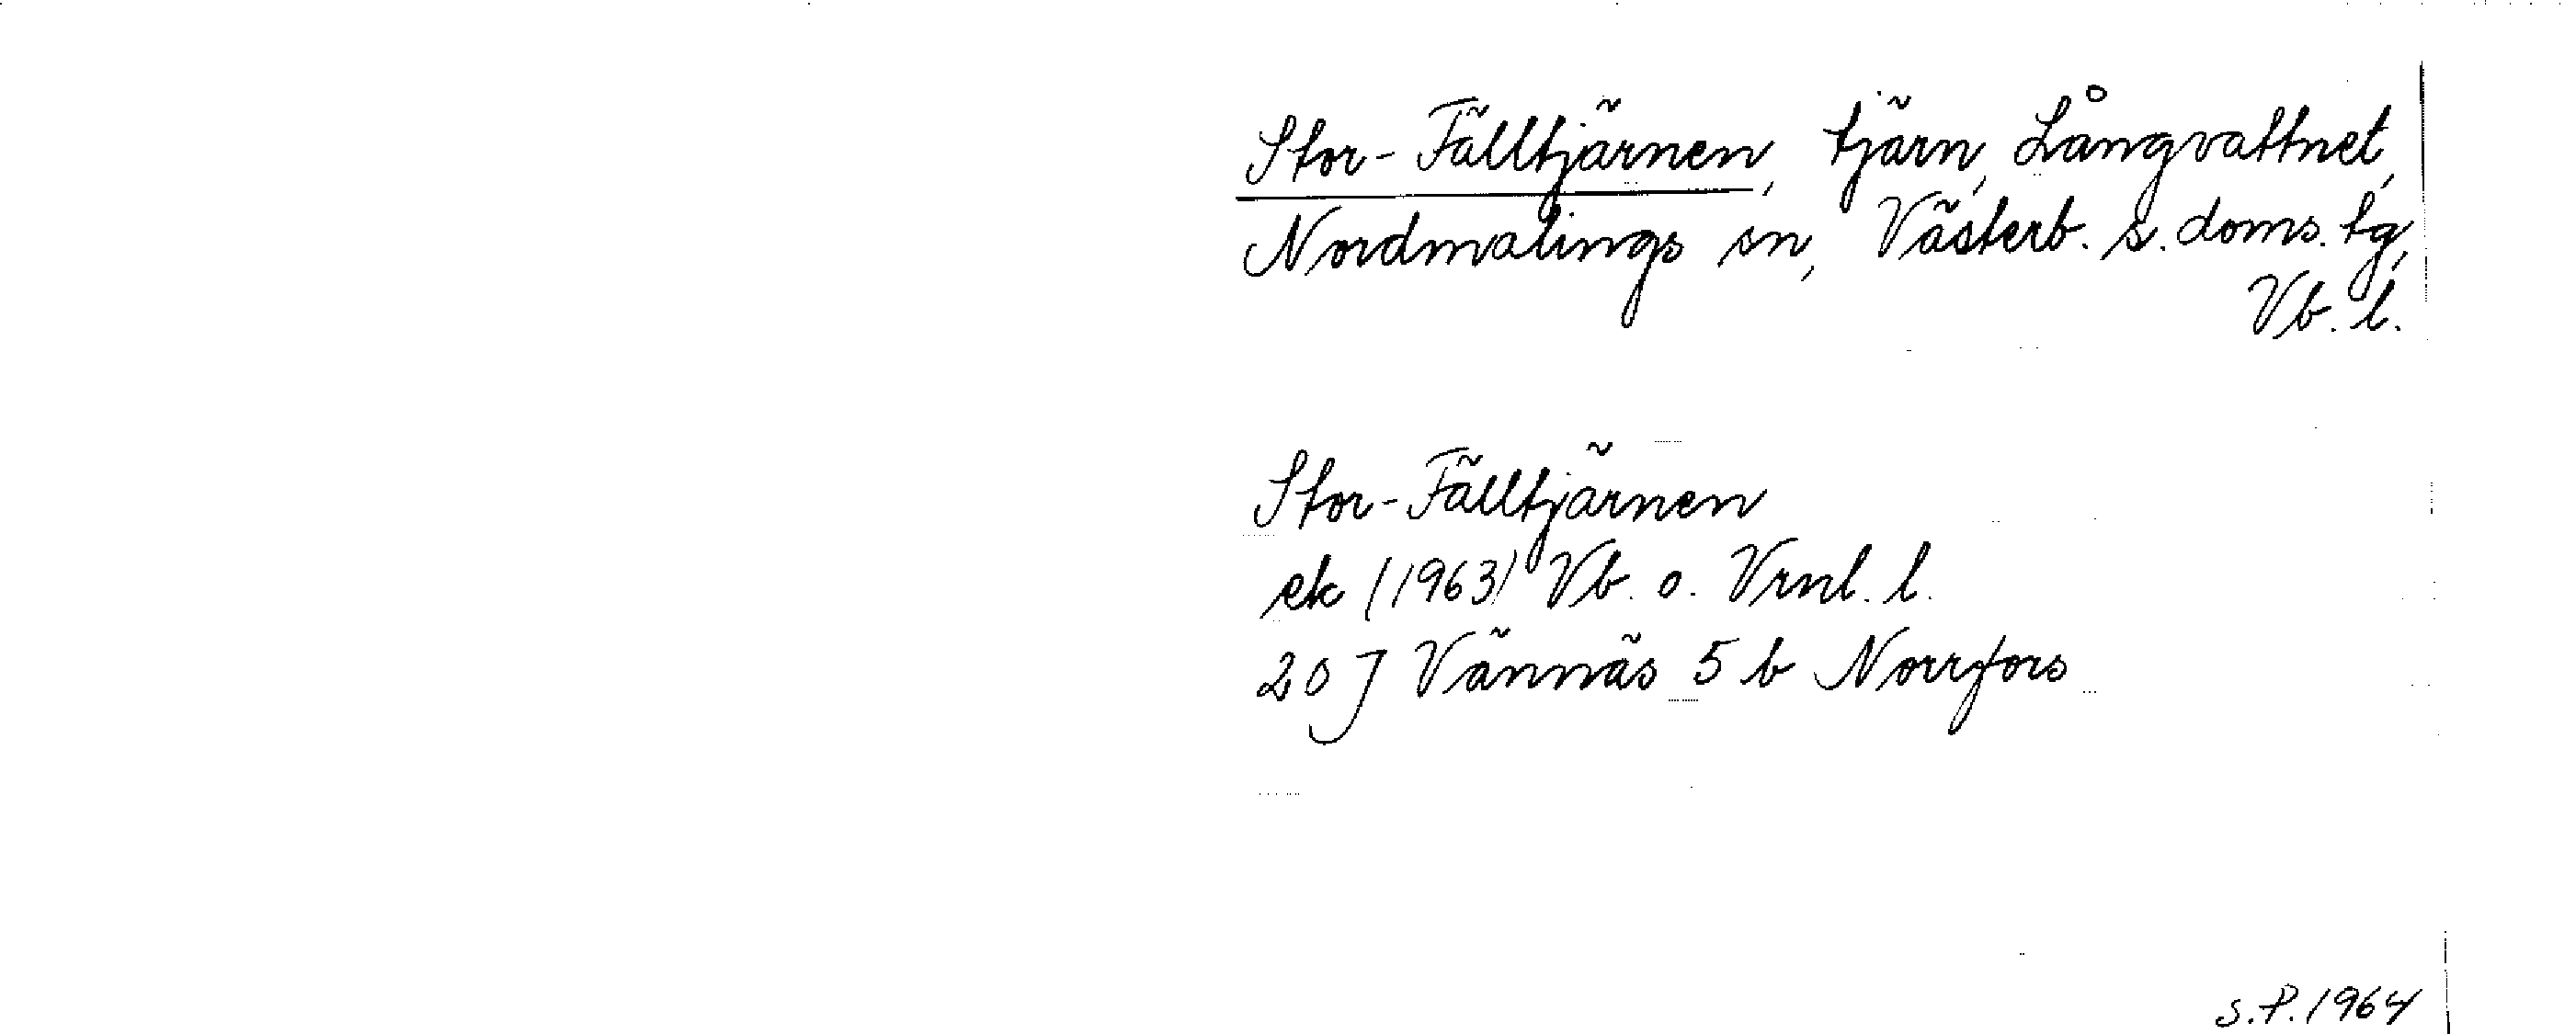 Stor-Fälltjärnen, tjärn, Långvattnet,
Nordmalings sn, Västerb. s. doms. tg,
Vb. l.
Stor-Fälltjärnen
ek (1963) Vb. o. Vrnl. l.
20 J Vännäs 5 b Norrfors
S.P. 1964